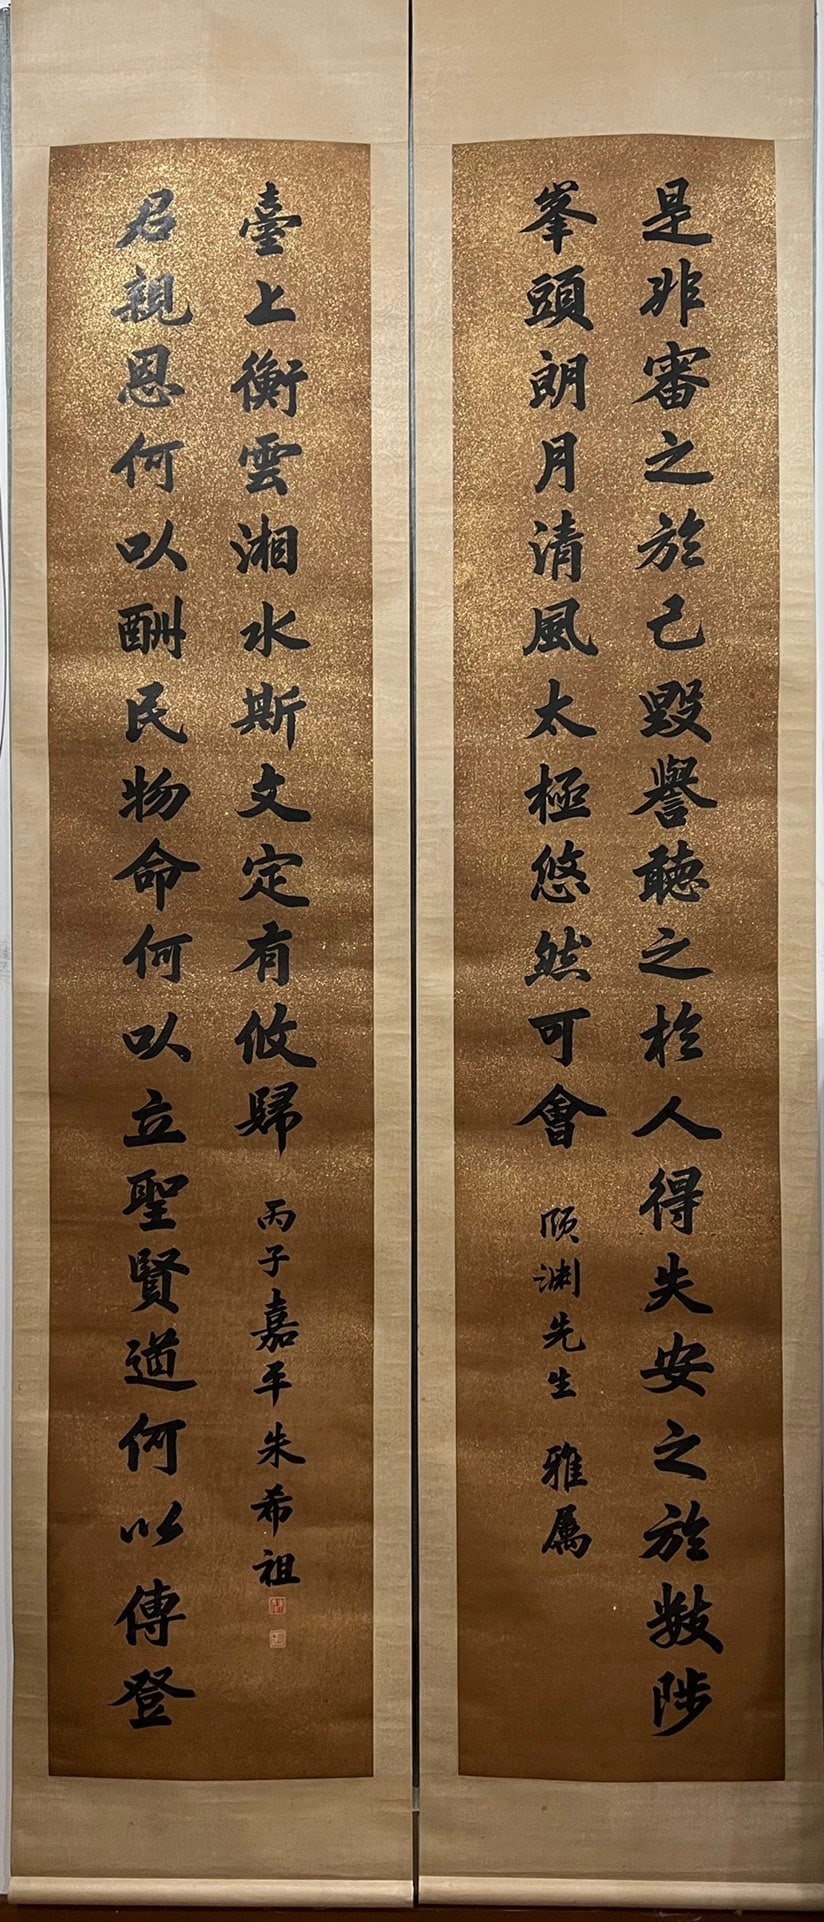 是非審之於己毀譽聽之於人得失安之於數陟
峯頭朗月清風太極悠然可會
頤渊先生 雅属
君親恩何以酬民物命何以立聖賢道何以傳登
臺上衡雲湘水斯文定有攸歸
丙子嘉平朱希祖